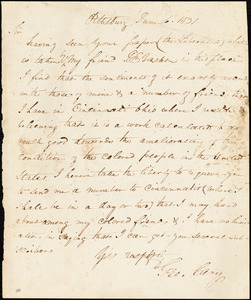 Pittsburg June 6. 1831.
Sir
having seen your paper (the Liberator) which
is taken by my friend in this place
I find that the sentiments of it exactly accord
with those of mine & a number of friends that
I have in Cincinnati Ohio where I reside
believing that it is a work calculated to do
much good towards the amelioration of the
condition of the colored people in the United
States, I hereon take the liberty to request you
to send me a number to Cincinnati (where I
shall be in a day or two) that I may hand
about among my colored friends & I have no hesi-
tation in saying that I can get you several sub-
scribers
Yrs respy
Geo. Cary